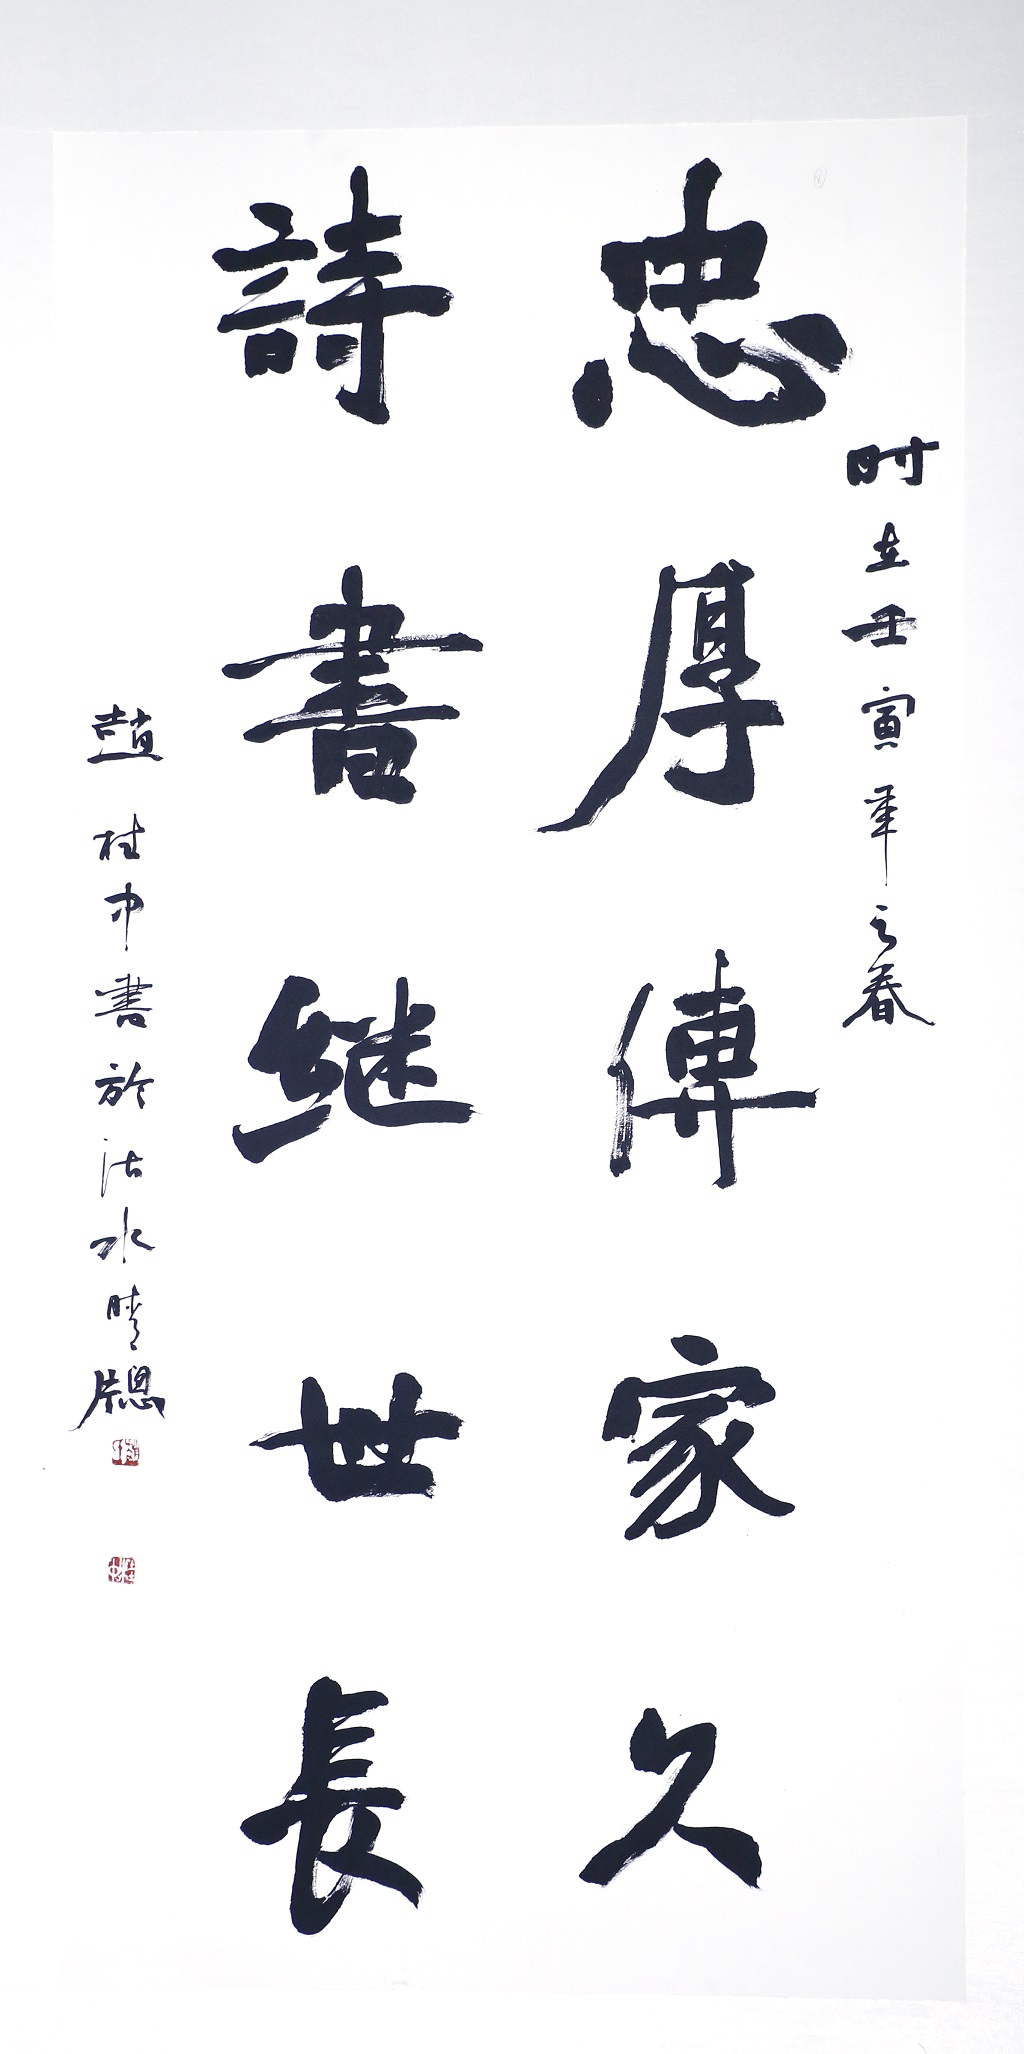 忠厚傳家久
詩書繼世長
时在壬寅年之春
趙桂中書於沽水晴牕